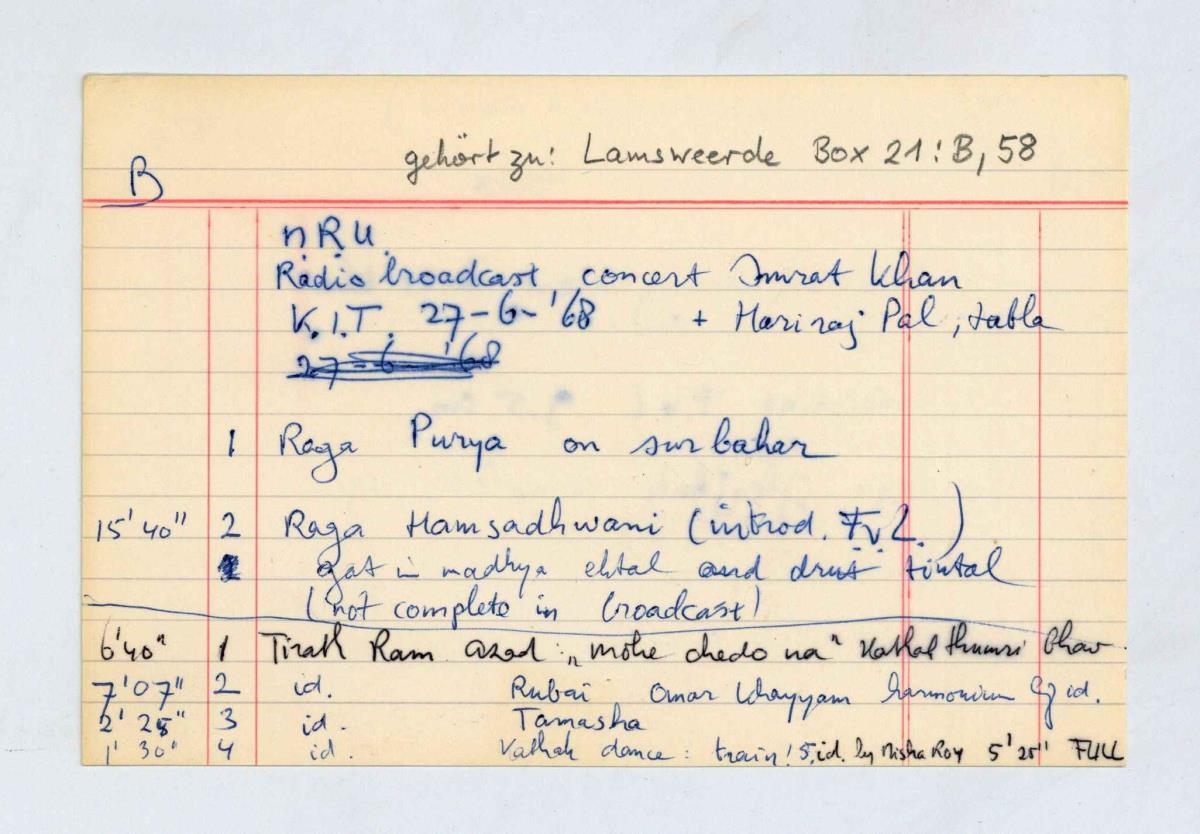 gehört zu: Lamsweerde Box 21: B, 58
B
n.R.U.
Radio broadcast, concert Imrat Khan
K.I.T. 27-6-'68 + Hariraj Pal, tabla
27-6-'68
1 Raga Purya on surbahar
15'40" 2 Raga Hamsadhwani (introd. F.v.L.)
gat in madhya ektal and drut tintal
(not complete in broadcast)
6'40" 1 Tirath Ram Azad: „mohe chedo na" Kathak thumri bhav
7'07" 2 id. Rubai Omar Khayyam harmonium by id.
2' 28" 3 id. Tamasha
1' 30" 4 id. Kathak dance: train! 5, id. by Misha Roy 5'25" FULL